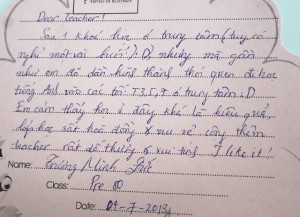 Dear Teacher!
Sau 1 khoá học ở trung tâm (tuy có
nghỉ một vài buổi ):D, nhưng mà gần
như em đã dần hình thành thói quen đi học
tiếng Anh vào các tối T3,5,7 ở trung tâm :D
Em cảm thấy học ở đây khá là hiệu quả,
lớp học rất hoà đồng & vui vẻ cộng thêm
teacher rất dễ thương & vui tính. I like it!
Name: Trương Minh
Class: Pre
Date: 04-7-2013